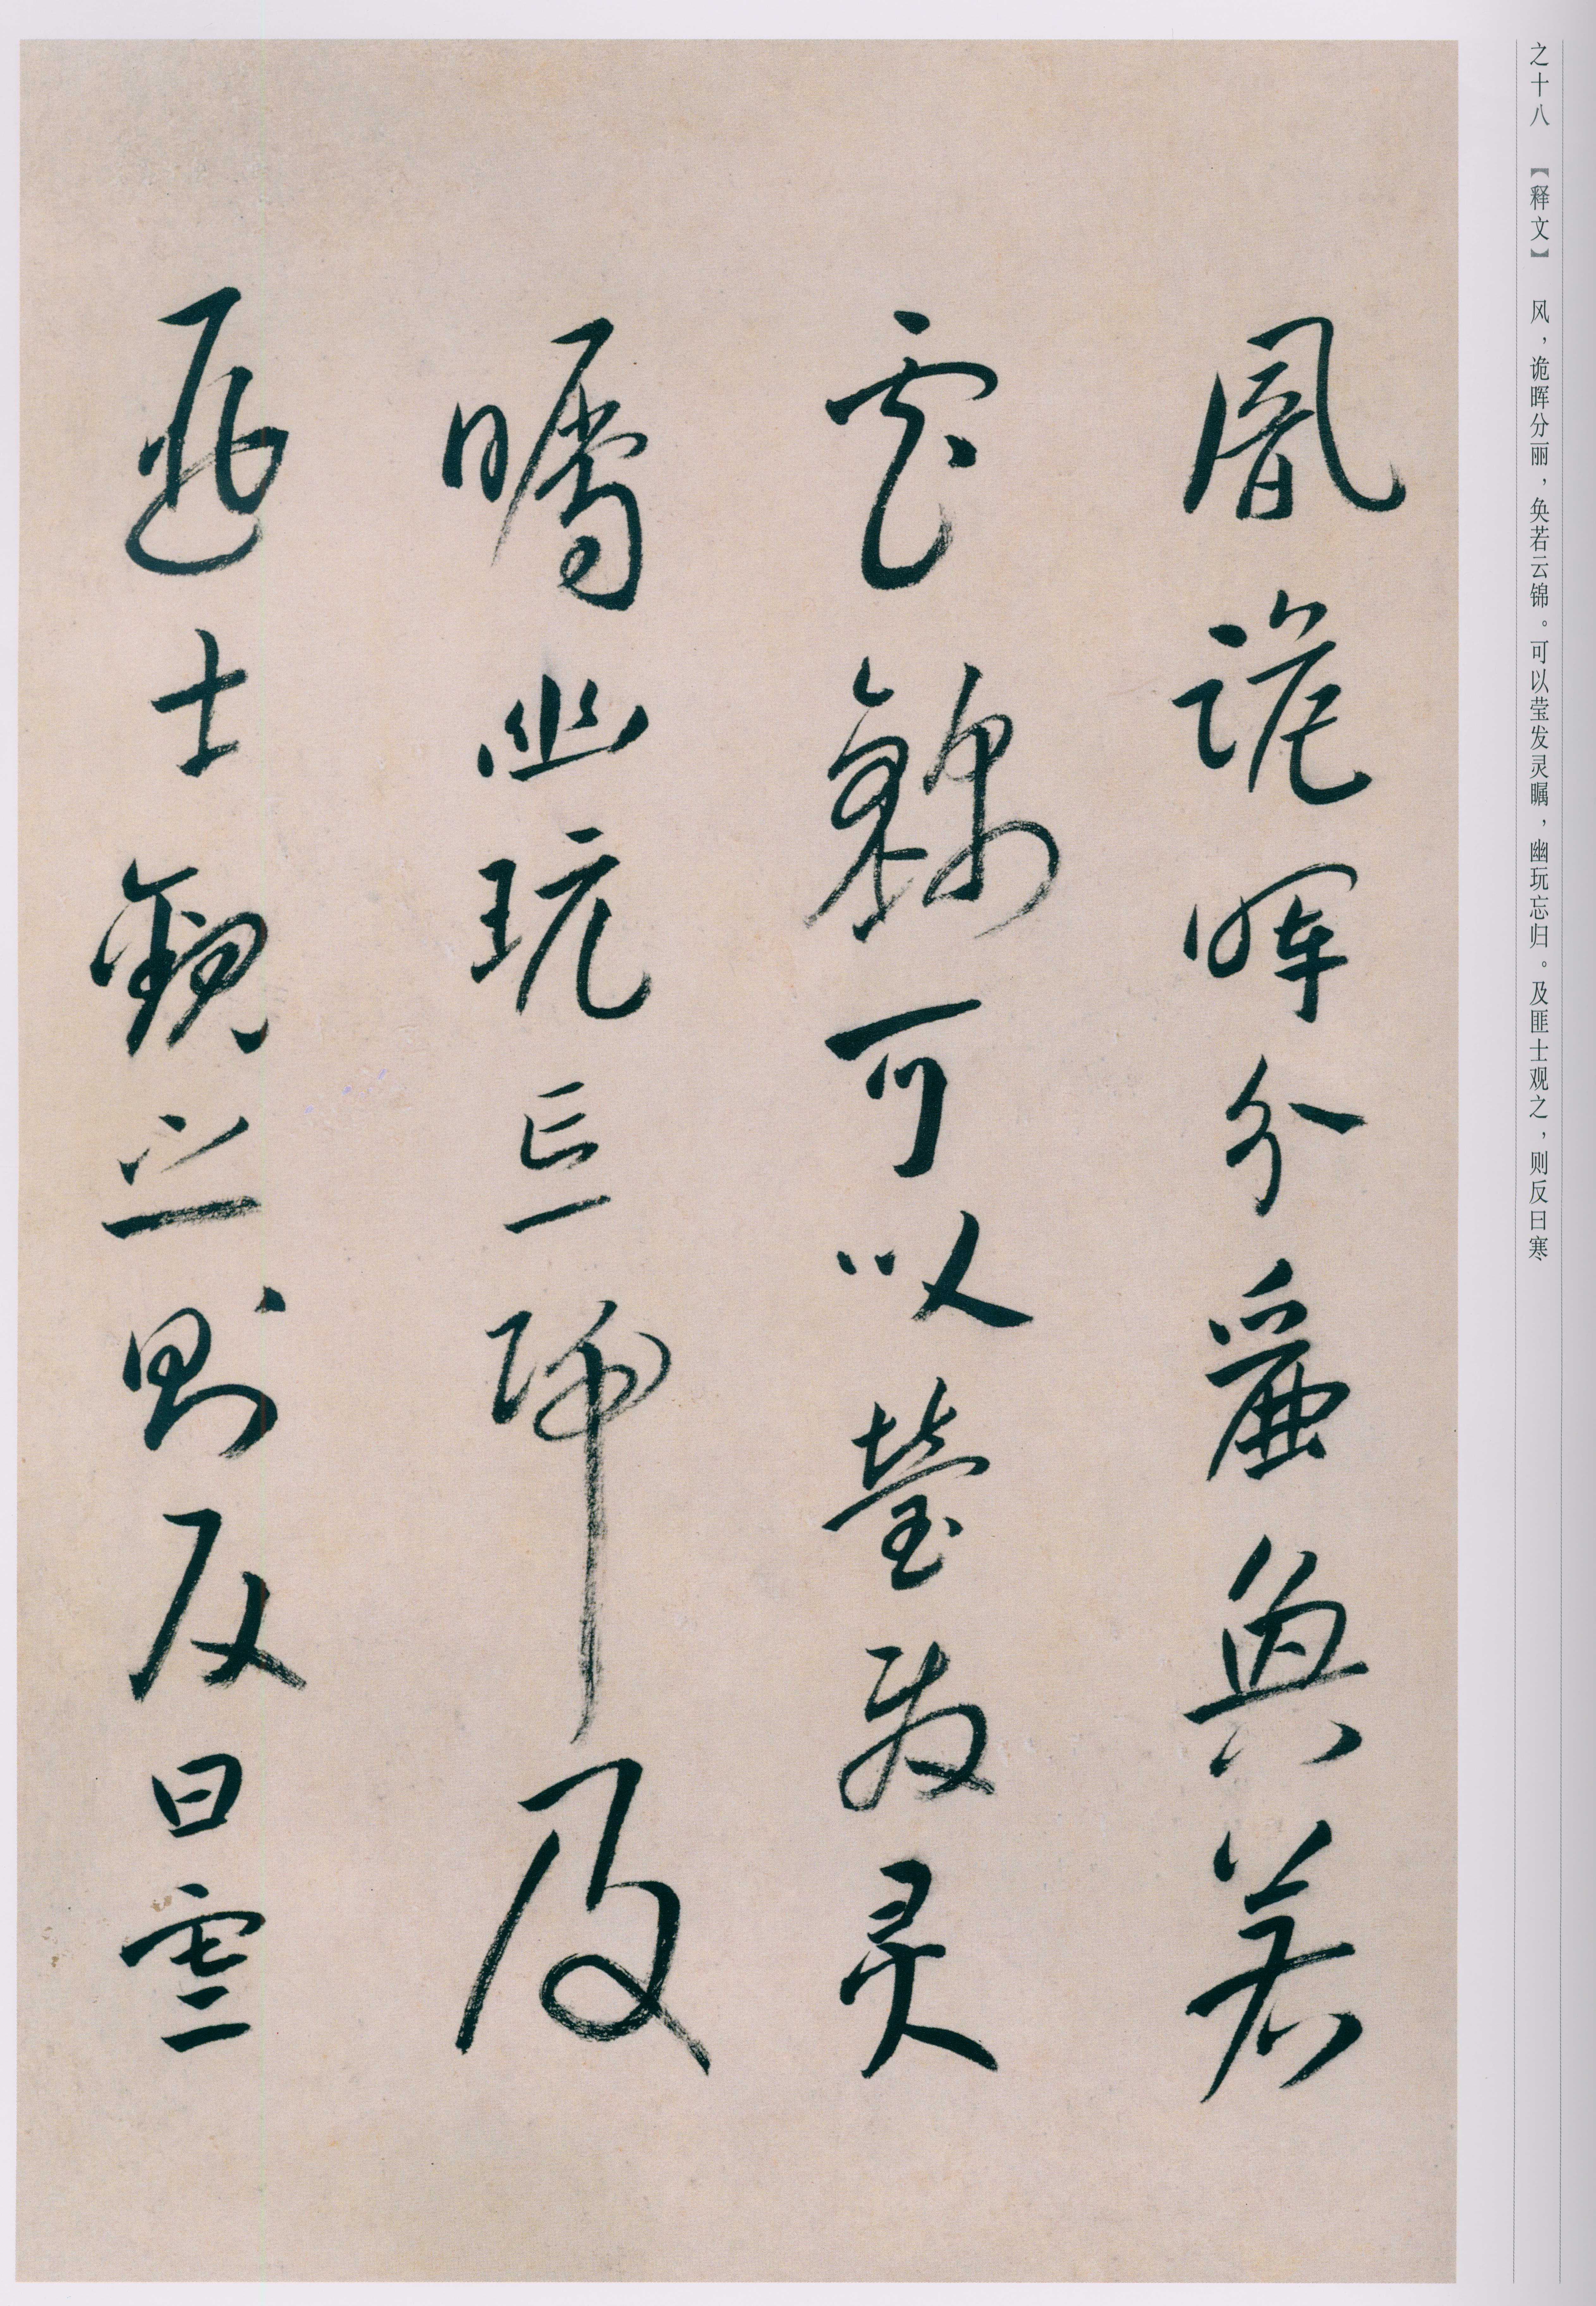 之十八 【释文】 风，诡晖分丽，奂若云锦。可以莹发灵瞩，幽玩忘归。及匪士观之，则反曰寒
風詭暉分麗奐若
雲錦可以瑩發灵
矚幽玩忘歸及
匪士觀之則反曰寒